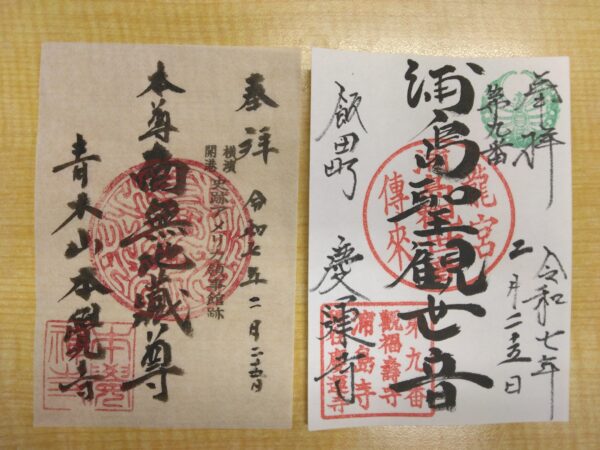 奉拝
令和七年二月二十五日
横濱
開港
史跡アメリカ領事館跡
本尊
南無地蔵尊
青木山本覺寺
本覺
奉拝
第九番
令和七年
二月二十五日
浦島聖観世音
龍宮
傳來
飯田町
慶運寺
第九番
觀福壽寺
浦島寺